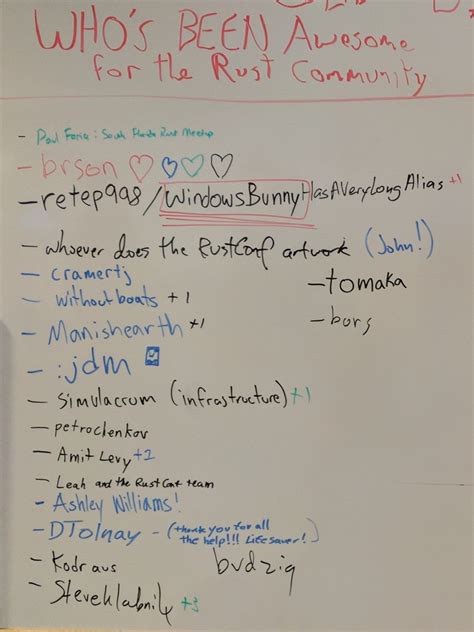 WHO'S BEEN Awesome
for the Rust Community
- Paul Faria: South Florida Rust Meetup
- brson ♡♡♡♡
- retep998/WindowsBunnyHasAVeryLongAlias +1
- whoever does the RustConf artwork (John!)
- cramertj
- withoutboats +1
- Manishearth +1
- :jdm
- simulacrum (infrastructure) +1
- petrochenkov
- Amit Levy +2
- Leah and the RustConf team
- Ashley Williams!
- DTolnay - (thank you for all
the help!!! Life saver!)
- Kodraus
- Steveklabnik +3
- tomaka
- bors
bvdzig